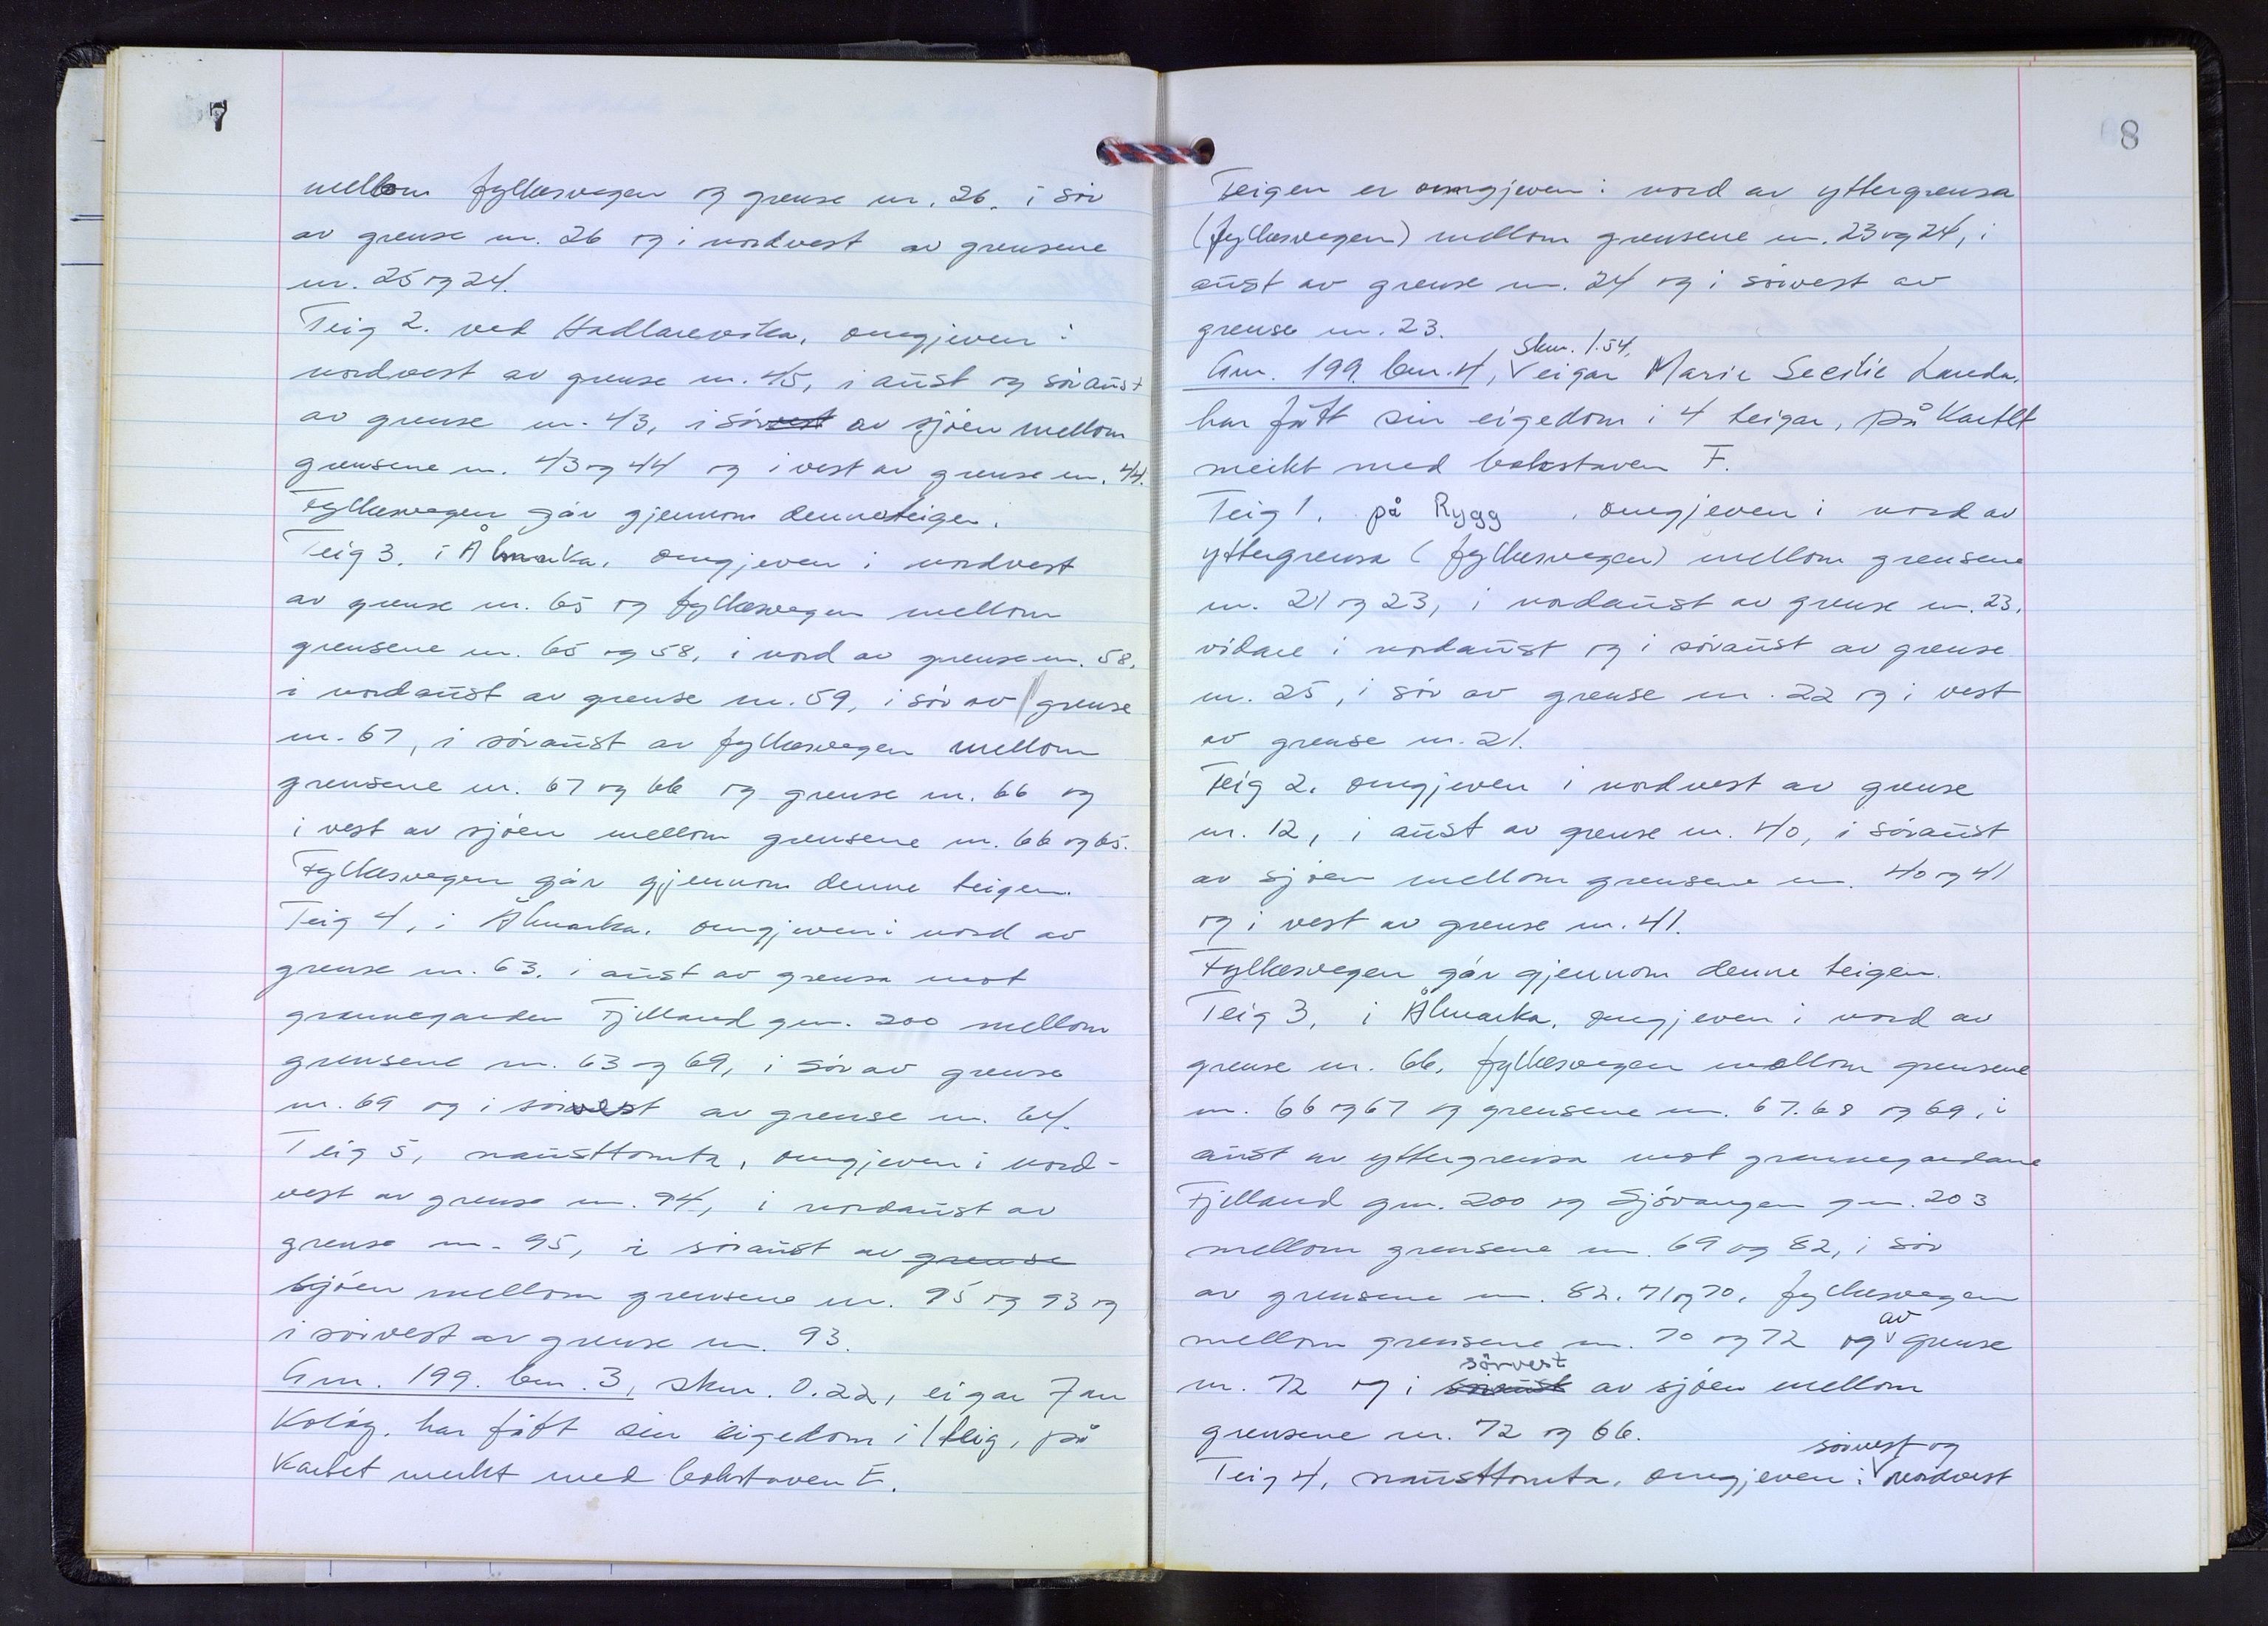 7
mellom fylkesvegen og grense nr. 26. i sör
av grense nr. 26 og i nordvest av grensene
nr. 25 og 24.
Teig 2. ved Hadlarevika, omgjeven i
nordvest av grense nr. 45, i aust og söraust
av grense nr. 43, i sörvest av sjöen mellom
grensene nr. 43 og 44 og i vest av grense nr. 44.
Fylkesvegen går gjennom denne teigen.
Teig 3. i Ålmarka, omgjeven i nordvest
av grense nr. 65 og fylkesvegen mellom
grensene nr. 65 og 58, i nord av grense nr. 58,
i nordaust av grense nr. 59, i sör av grense
nr. 67, i söraust av fylkesvegen mellom
grensene nr. 67 og 66 og grense nr. 66 og
i vest av sjöen mellom grensene nr. 66 og 65.
Fylkesvegen går gjennom denne teigen.
Teig 4, i Ålmarka, omgjeven i nord av
grense nr. 63, i aust av grensa mot
grannegarden Fjelland gnr. 200 mellom
grensene nr. 63 og 69, i sör av grense
nr. 69 og i sörvest av grense nr. 64.
Teig 5, nausttomta, omgjeven i nord-
vest av grense nr. 94, i nordaust av
grense nr. 95, i söraust av grense
sjöen mellom grensene nr. 95 og 93 og
i sörvest av grense nr. 93.
Gnr. 199. bnr. 3, skm. 0.22, eigar Jan
har fått sin eigedom i 1 teig, på
kartet merkt med bokstaven E.
8
Teigen er omgjeven i nord av yttergrensa
(fylkesvegen) mellom grensene nr. 23 og 24, i
aust av grense nr. 24 og i sörvest av
grense nr. 23.
skm. 1.54,
Gnr. 199. bnr. 4, eigar Marie Secilie Landa,
har fått sin eigedom i 4 teigar, på kartet
merkt med bokstaven F.
Teig 1. på Rygg, omgjeven i nord av
yttergrensa (fylkesvegen) mellom grensene
nr. 21 og 23, i nordaust av grense nr. 23,
vidare i nordaust og i söraust av grense
nr. 25, i sör av grense nr. 22 og i vest
av grense nr. 21.
Teig 2. omgjeven i nordvest av grense
nr. 12, i aust av grense nr. 40, i söraust
av sjöen mellom grensene nr. 40 og 41
og i vest av grense nr. 41.
Fylkesvegen går gjennom denne teigen.
Teig 3, i Ålmarka, omgjeven i nord av
grense nr. 66, fylkesvegen mellom grensene
nr. 66 og 67 og grensene nr. 67. 68 og 69, i
aust av yttergrensa mot grannegardane
Fjelland gnr. 200 og Sjövangen gnr. 203
mellom grensene nr. 69 og 82, i sör
av grensene nr. 82. 71 og 70, fylkesvegen
av
mellom grensene nr. 70 og 72 og grense
sörvest
nr. 72 og i söraust av sjöen mellom
grensene nr. 72 og 66.
sörvest og
Teig 4, nausttomta, omgjeven i nordvest